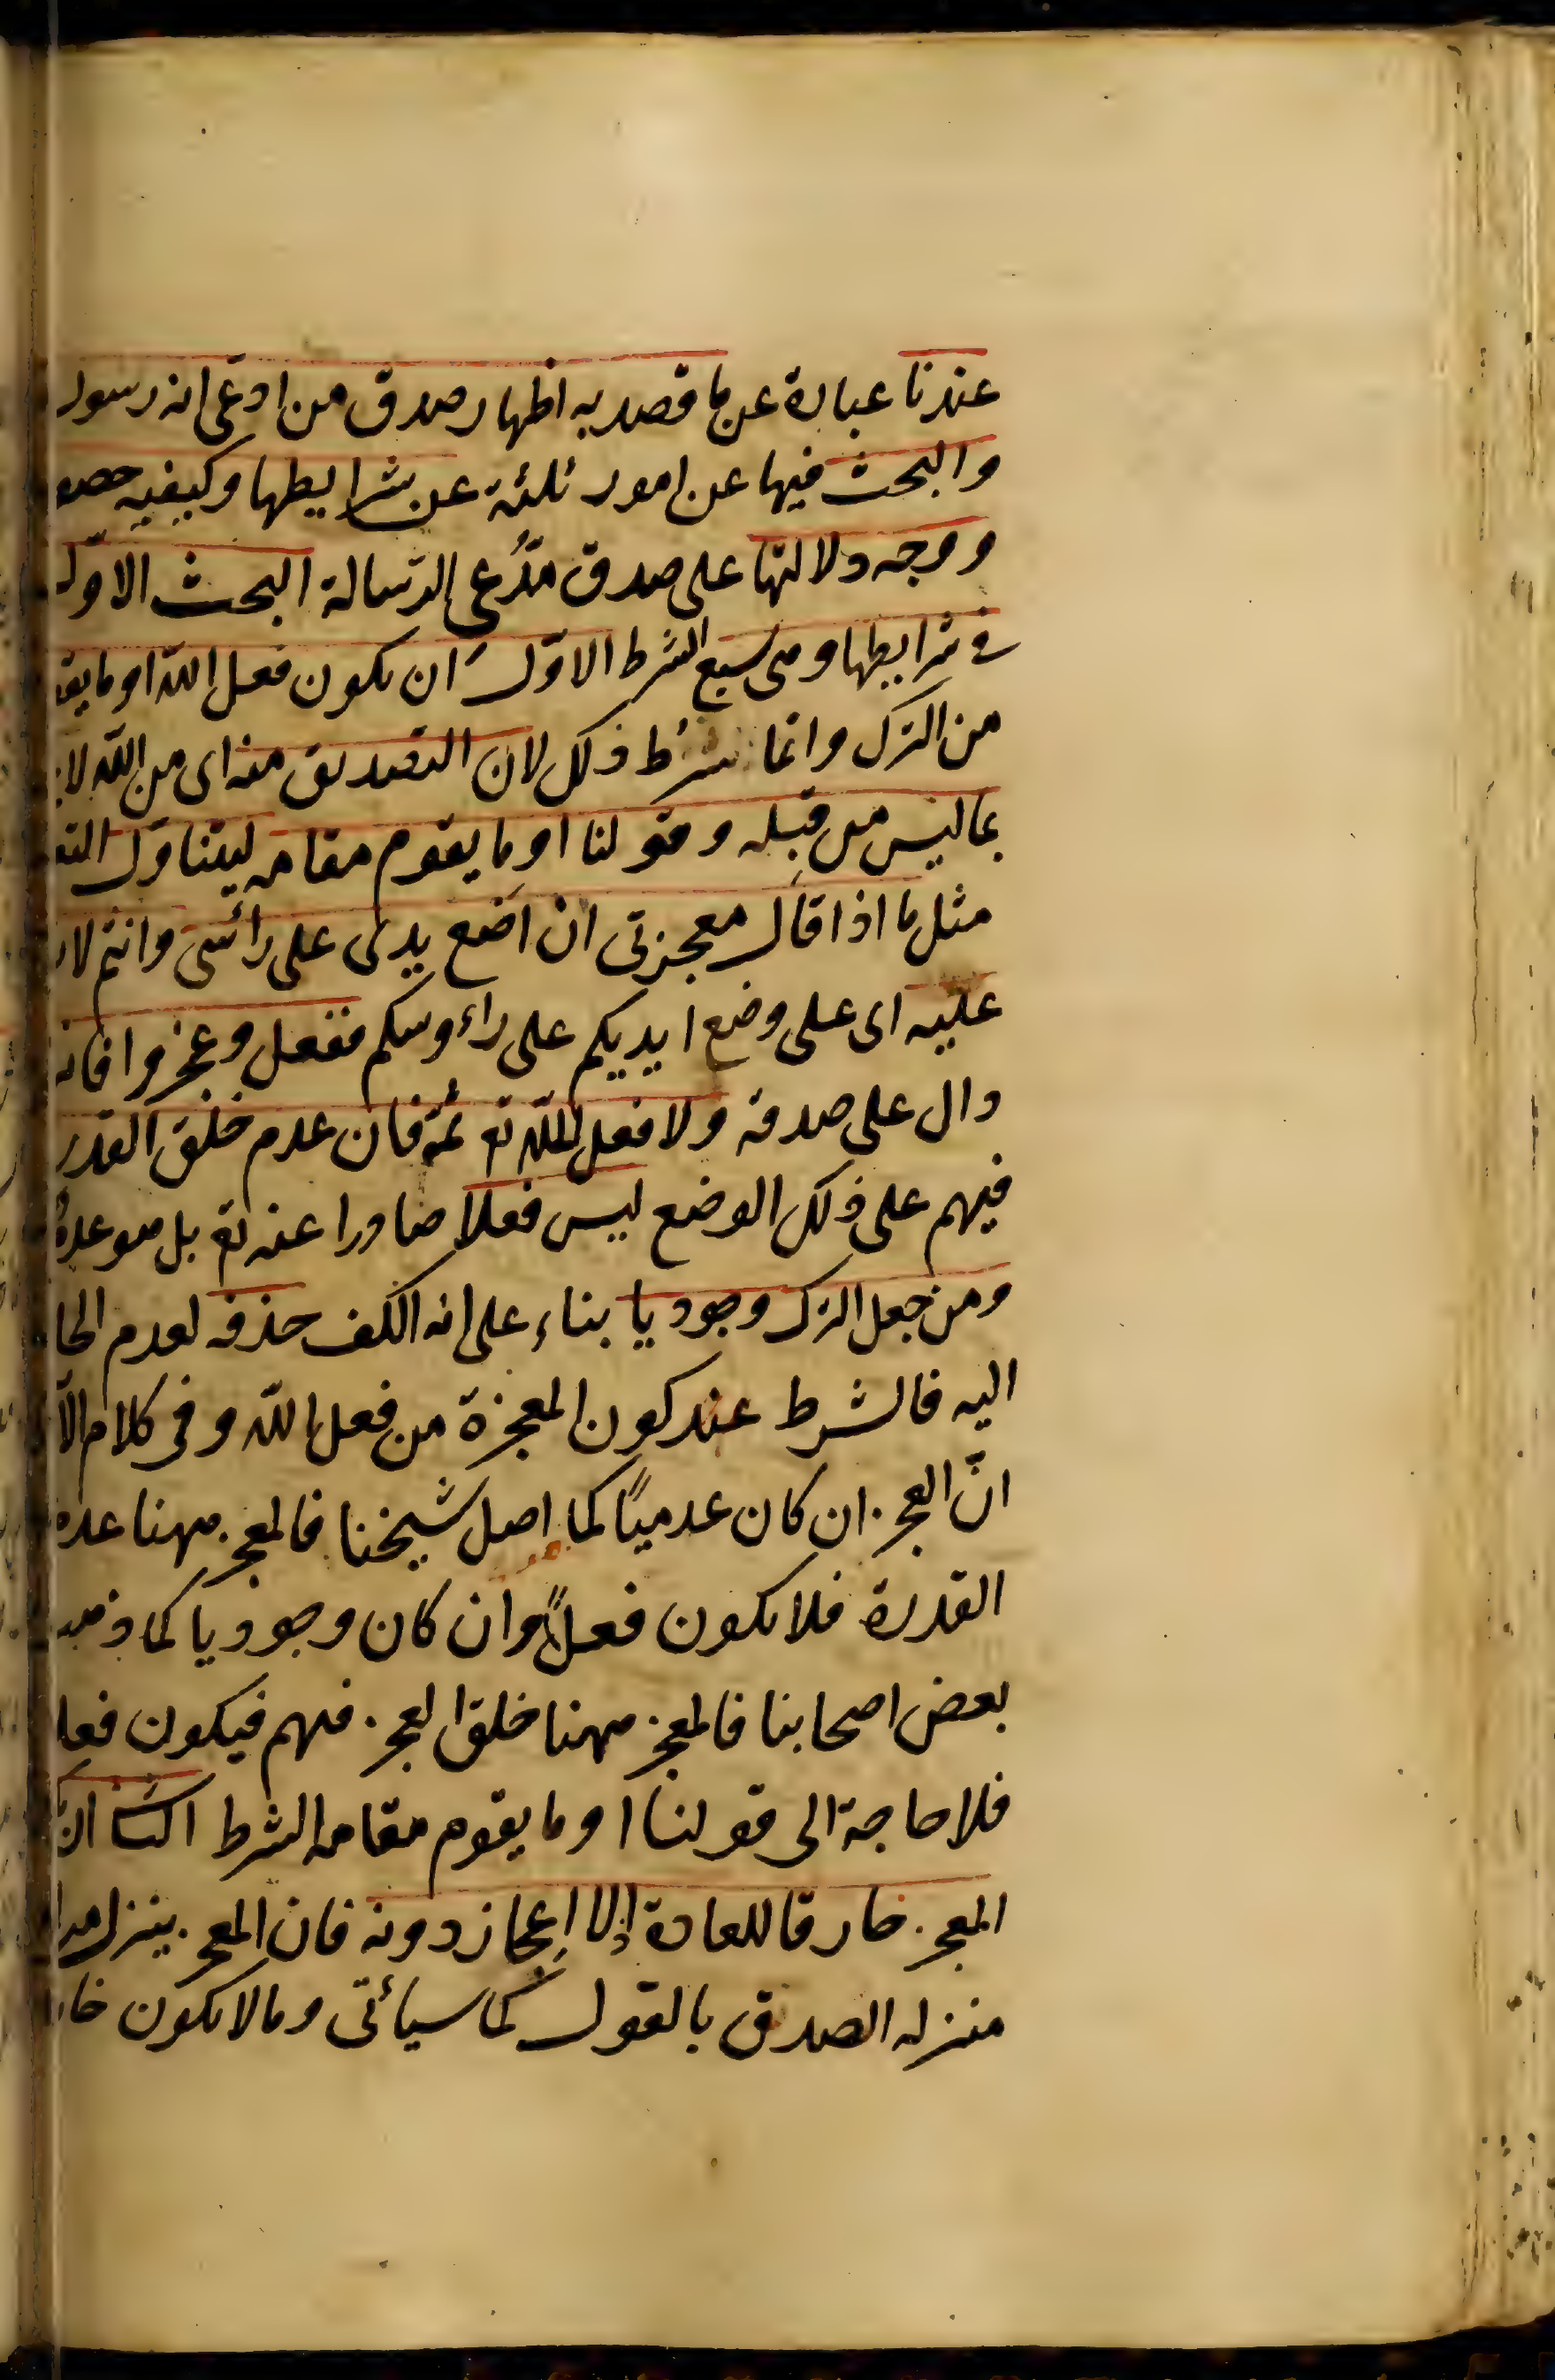 عندنا عبارة عن ما قصد به اظهار صدق من ادعى انه رسول
والبحث فيها عن امور ثلثة عن شرايطها وكيفيه حصو
ووجه دلالتها على صدق مدّعى الرسالة البحث الاوّل
فى شرايطها وهى سبع الشرط الاوّل ان يكون فعل اللّه او ما يقو
من الترك وانما شرط ذلك لان التصديق منه اى من اللّه لا
بما ليس من قبله وقولنا او ما يقوم مقامه ليتناول التع
مثل ما اذا قال معجزتى ان اضع يدى على رائسى وانتم لا
عليه اى على وضع ايديكم على راءوسكم ففعل وعجزوا فانه
دال على صدقه ولا فعل للّه تع ثمّة فان عدم خلق القدر
فيهم على ذلك الوضع ليس فعلا صادرا عنه تع بل هو عدم
ومن جعل الترك وجوديا بناء على انه الكف حذفه لعدم الحا
اليه فالشرط عند كون المعجزة من فعل اللّه وفى كلام الآ
انّ العجز ان كان عدميًا كما اصل شيخنا فالمعجز ههنا عدم
القدرة فلا يكون فعلًا وان كان وجوديا كما ذهب
بعض اصحابنا فالمعجز ههنا خلق العجز فيهم فيكون فعلا
فلا حاجة الى قولنا او ما يقوم مقامه الشرط الثا ان
المعجز خارقا للعادة اذ لا اعجاز دونه فان المعجز ينزل من
منزله الصدق بالقول كما سيأتى وما لا يكون خا